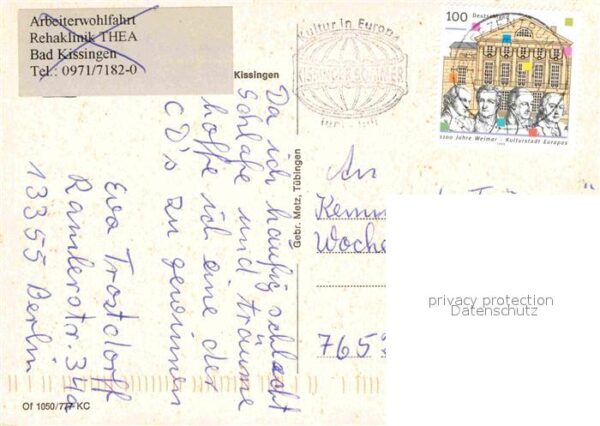 Arbeiterwohlfahrt
Rehaklinik THEA
Bad Kissingen
Tel.: 0971/7182-0
Kissingen
Kultur in Europa
KISSINGER SOMMER
Juni-Juli
100 Deutschland
1100 Jahre Weimar · Kulturstadt Europas
1999
Da ich häufig schlecht
schlafe und träume
hoffe ich eine der
CD's zu gewinnen
Eva Trostdorff
Ramlerstr. 34a
13355 Berlin
Gebr. Metz, Tübingen
An
Woche
765
Of 1050/777 KC
privacy protection
Datenschutz